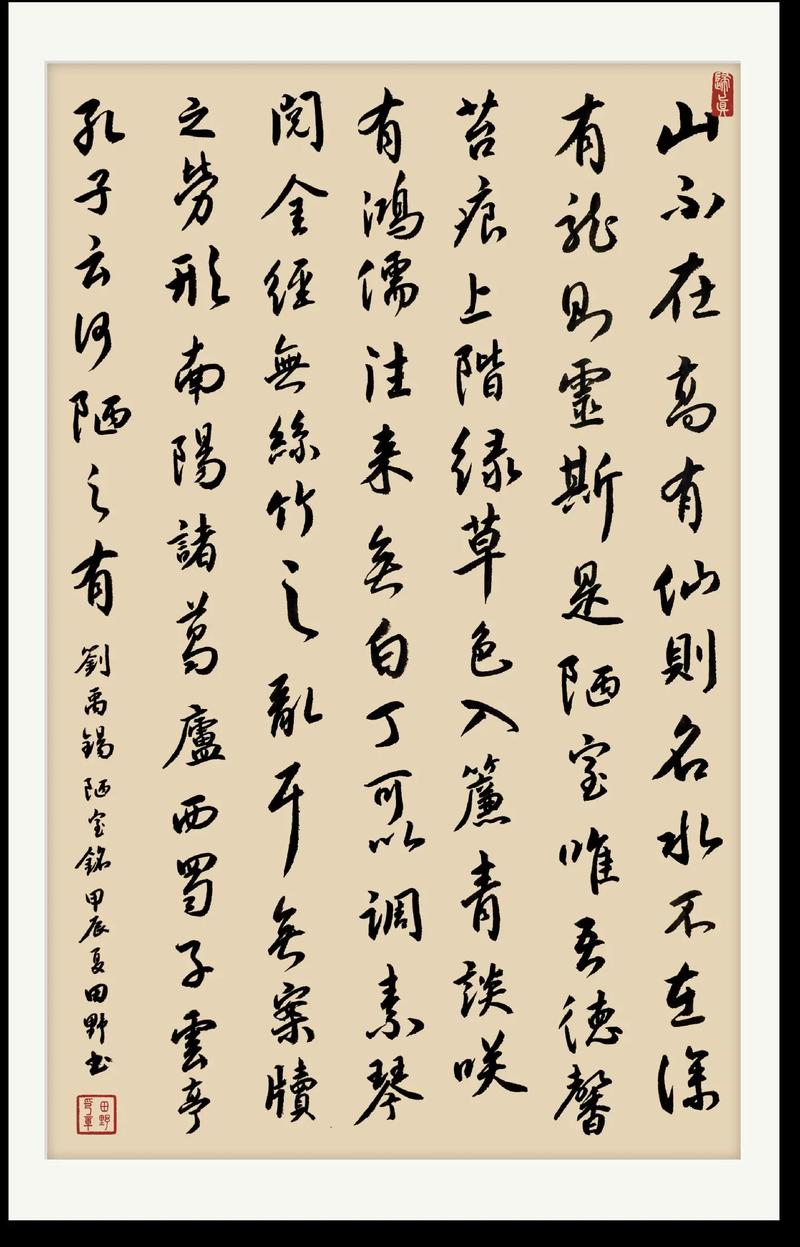 山不在高有仙則名水不在深
有龍則靈斯是陋室唯吾德馨
苔痕上階緑草色入簾青談咲
有鴻儒往来無白丁可以调素琴
閲金經無絲竹之亂耳無案牘
之勞形南陽諸葛廬西蜀子雲亭
孔子云何陋之有
劉禹錫陋室銘甲辰夏田野书
田野印章